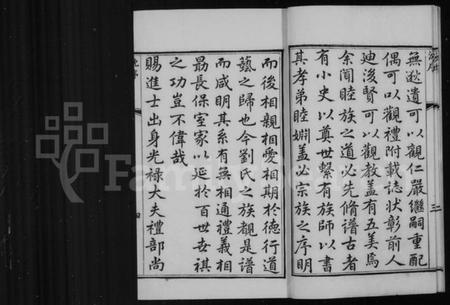 無逖遺可以觀仁嚴繼嗣重配
偶可以觀禮附載誌狀彰前人
迪後賢可以觀教蓋有五美焉
余聞睦族之道必先脩譜古者
有小史以奠世繫有族師以書
其孝弟睦婣蓋必宗族之序明
而後相親相愛相期於德行道
藝之歸也今劉氏之族覩是譜
而咸明其系有無相通禮義相
勗長保室家以延於百世之祺
之功豈不偉哉
賜進士出身光祿大夫禮部尚